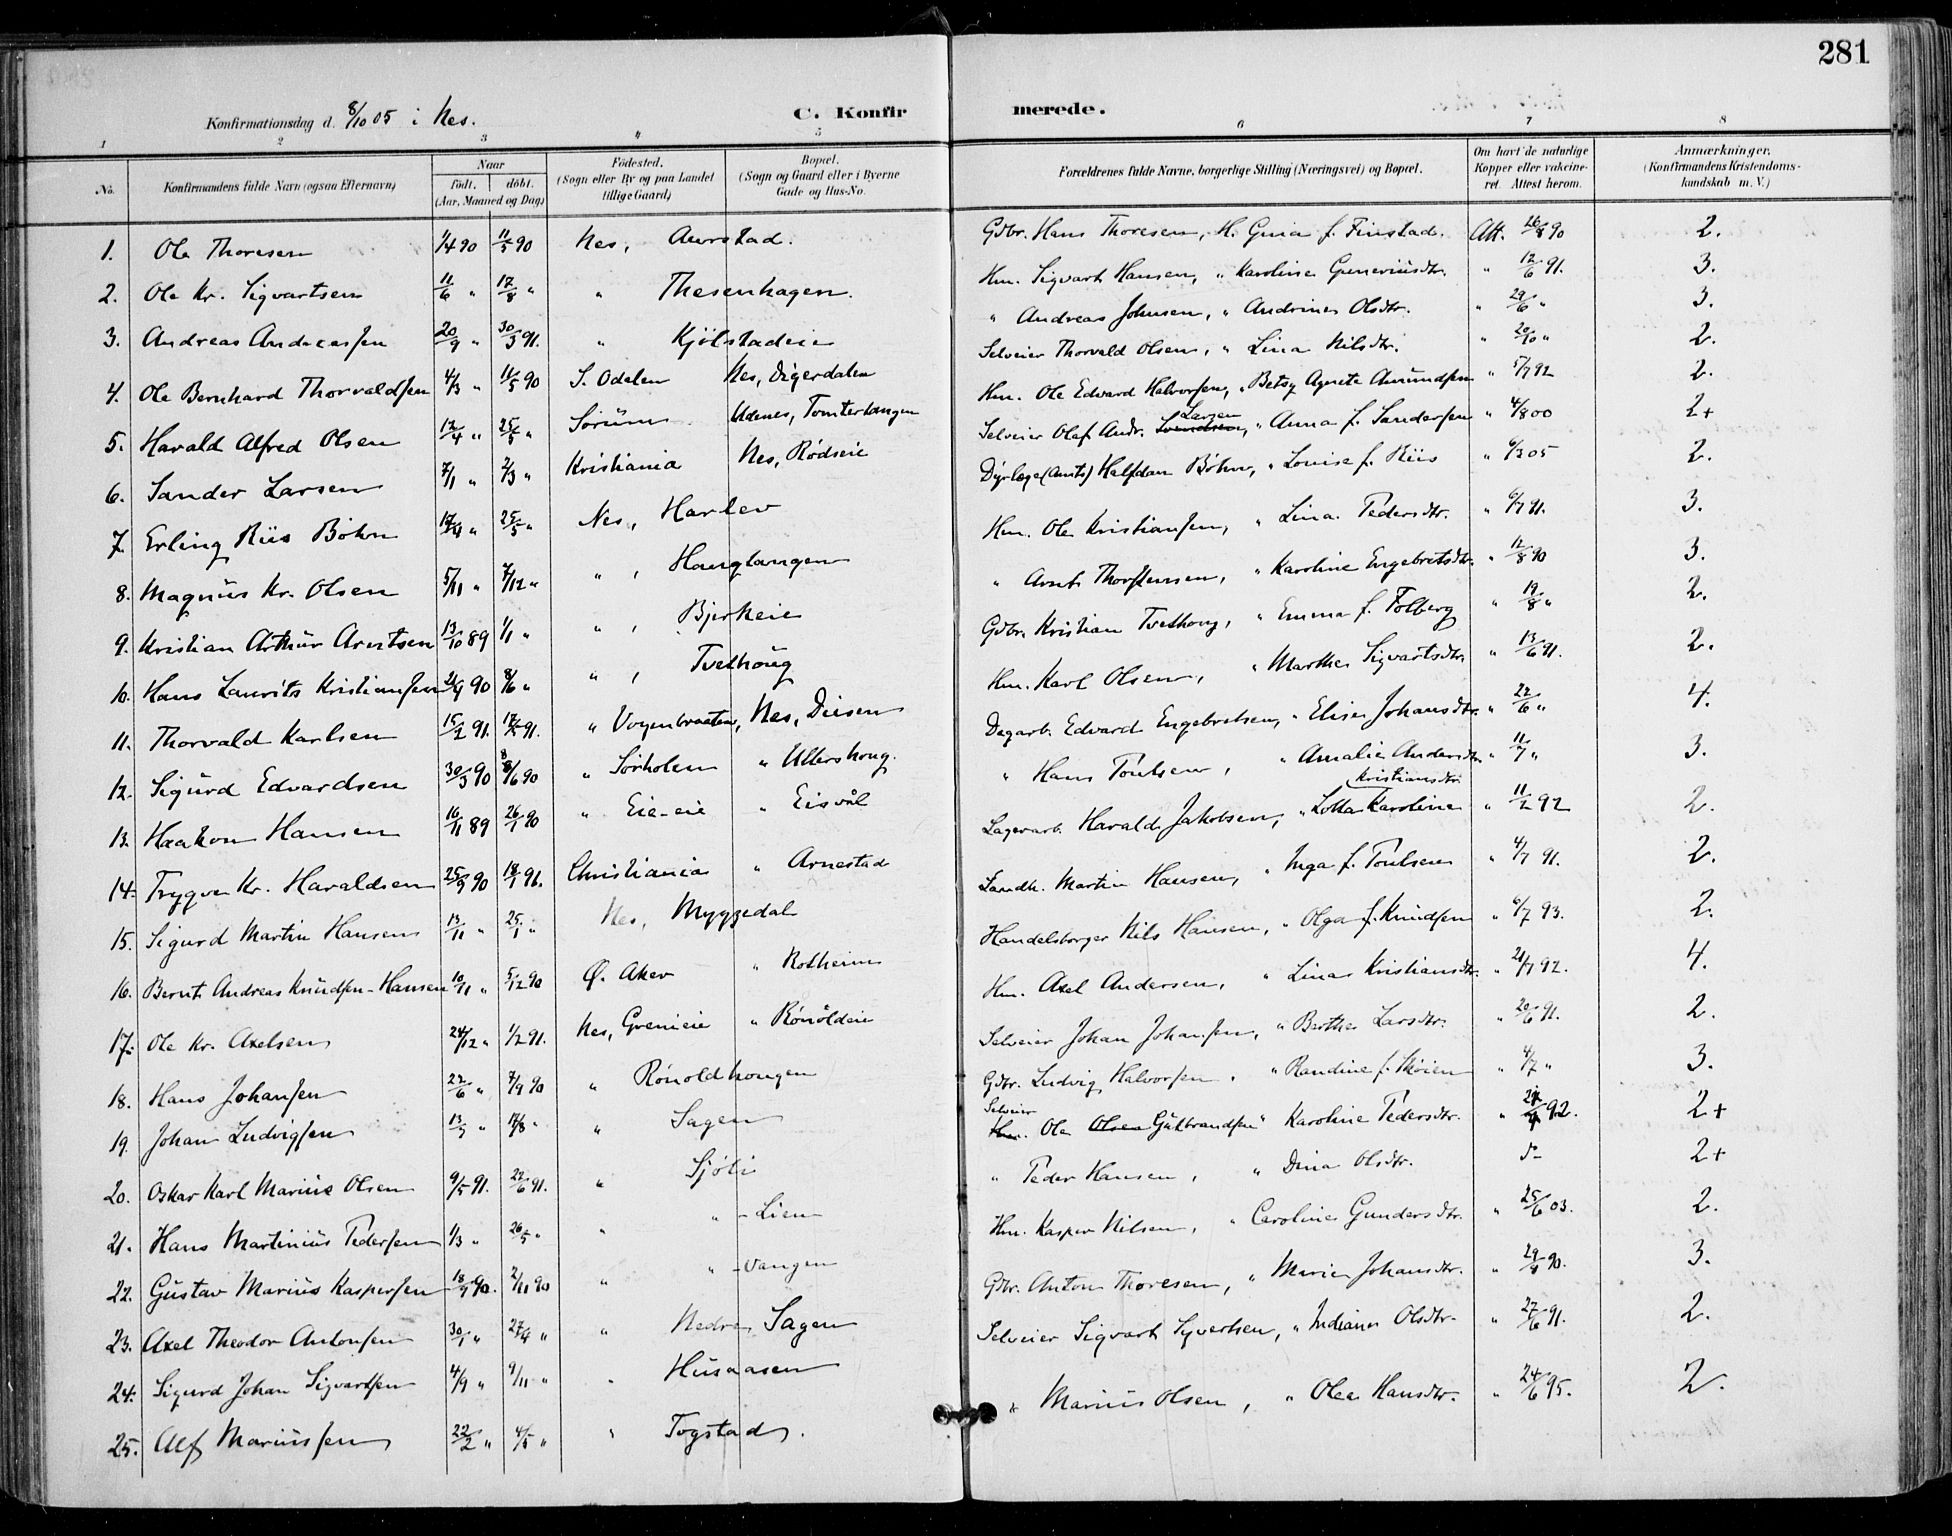 281
Konfirmationsdag d. 8/10 05 i Nes.
C. Konfirmerede.
1 2 3 " 5 6 7 8
No. Konfirmandens fulde Navn (ogsaa Efternavn) Naar födt. döbt. (Aar, Maaned og Dag) Födested. (Sogn eller By og paa Landet tillige Gaard) Bopæl. (Sogn og Gaard eller i Byerne Gade og Hus-No. Forældrenes fulde Navne, borgerlige Stilling (Næringsvei) og Bopæl. Om havt de naturlige Kopper eller vakcineret. Attest herom. Anmærkninger. (Konfirmandens Kristendomskundskab m. V.)
1. Ole Thoresen 1/4 90 11/5 90 Nes, Aurstad. Gdbr. Hans Thoresen, H. Gina f. Finstad. Att. 26/8 90 2.
2. Ole Kr. Sigvartsen 11/6 " 17/8 " " Thesenhagen. Hm. Sigvart Hansen, " Karoline Guneriusdtr. " 12/6 91. 3.
3. Andreas Andreassen 20/9 " 30/3 91. " Kjölstadeie " Andreas Johnsen, " Andrine Olsdtr. " 29/6 " 3.
4. Ole Bernhard Thorvaldsen 4/3 " 11/5 90 S. Odalen Nes, Digerdalen Selveier Thorvald Olsen, " Lina Nilsdtr. " 20/10 " 2.
5. Harald Alfred Olsen 12/4 " 25/5 " Sörum Udenes, Tomtertangen Hm. Ole Edvard Halvorsen, " Betsy Agnete Amundsen " 5/7 92 2.
6. Sander Larsen 7/1 " 2/3 " Kristiania Nes, Rödseie Selveier Olaf Andr. Svendsen Larsen, " Anna f. Sandersen " 4/8 00 2+
7. Erling Riis Böhn 17/4 " 25/5 " Nes, Harlev Dyrlæge (Amts) Halfdan Böhn, " Louise f. Riis " 6/3 05 2.
8. Magnus Kr. Olsen 5/11 " 7/12 " " , Haugtangen Hm. Ole Kristiansen, " Lina Pedersdtr. " 6/7 91. 3.
9. Kristian Arthur Arntsen 13/10 89 1/1 " " , Bjerkeie " Arnt Thorstensen, " Karoline Engebretsdtr. " 12/8 90 3.
10. Hans Laurits Kristiansen 21/4 90 8/6 " " , Tvethoug Gdbr. Kristian Tvethoug, " Emma f. Folberg " 19/8 " 2.
11. Thorvald Karlsen 15/2 91. 17/5 91. " Voyenbraaten, Nes, Disen Hm. Karl Olsen, " Marthe Sigvartsdtr. " 13/6 91. 2.
12. Sigurd Edvardsen 30/3 90 8/6 90 " Sörholen " Ullershoug. Dagarb. Edvard Engebretsen, " Elise Johansdtr. " 22/6 " 4.
13. Haakon Hansen 16/11 89 26/1 90 " Eie-eie " Eisvål " Hans Poulsen, " Amalie Andersdtr. " 11/7 " 3.
14. Trygve Kr. Haraldsen 25/9 90 18/1 91. Christiania " Arnestad Lagerarb. Harald Jakobsen, " Lotta Karoline Kristiansdtr. " 11/2 92 2.
15. Sigurd Martin Hansen 13/11 " 25/1 " Nes, Myggedal Landh. Martin Hansen, " Inga f. Poulsen " 4/7 91. 2.
16. Bernt Andreas Knudsen-Hansen 10/11 " 5/12 90 Ø. Aker " Rotheim Handelsborger Nils Hansen, " Olga f. Knudsen " 6/7 93. 2.
17. Ole Kr. Axelsen 24/12 " 1/2 91. Nes, Grenieie " Rónoldeie Hm. Axel Andersen, " Lina Kristiansdtr. " 21/7 92. 4.
18. Hans Johansen 22/6 " 7/9 90 " Rónoldhougen Selveier Johan Johansen, " Berthe Larsdtr. " 20/6 91. 2.
19. Johan Ludvigsen 13/7 " 17/8 " " Sagen Gdbr. Ludvig Halvorsen. " Randine f. Skóien " 4/7 " 3.
20. Oskar Karl Marius Olsen 9/5 91. 22/6 91. " Sjöli Selveier Hm. Ole Olsen Gulbrandsen " Karoline Pedersdtr. " 92. 2+
21. Hans Martinius Pedersen 1/3 " 26/5 " " " - Lien " Peder Hansen, " Dina Olsdtr. do 2+
22. Gustav Marius Kaspersen 18/9 90. 2/11 90 " " - Vangen Hm. Kasper Nilsen, " Caroline Gundersdtr. " 25/6 03. 2.
23. Axel Theodor Antonsen 30/1 " 27/4 " " Nedre Sagen Gdbr. Anton Thoresen, " Marie Johansdtr. " 29/8 90. 3.
24. Sigurd Johan Sigvartsen 4/9 " 9/11 " " Husaasen Selveier Sigvart Syvertsen, " Indiane Olsdtr. " 27/6 91. 2.
25. Alf Mariussen 22/2 " 4/5 " " Togstad. " Marius Olsen, " Olea Hansdtr. " 24/6 95. 2.